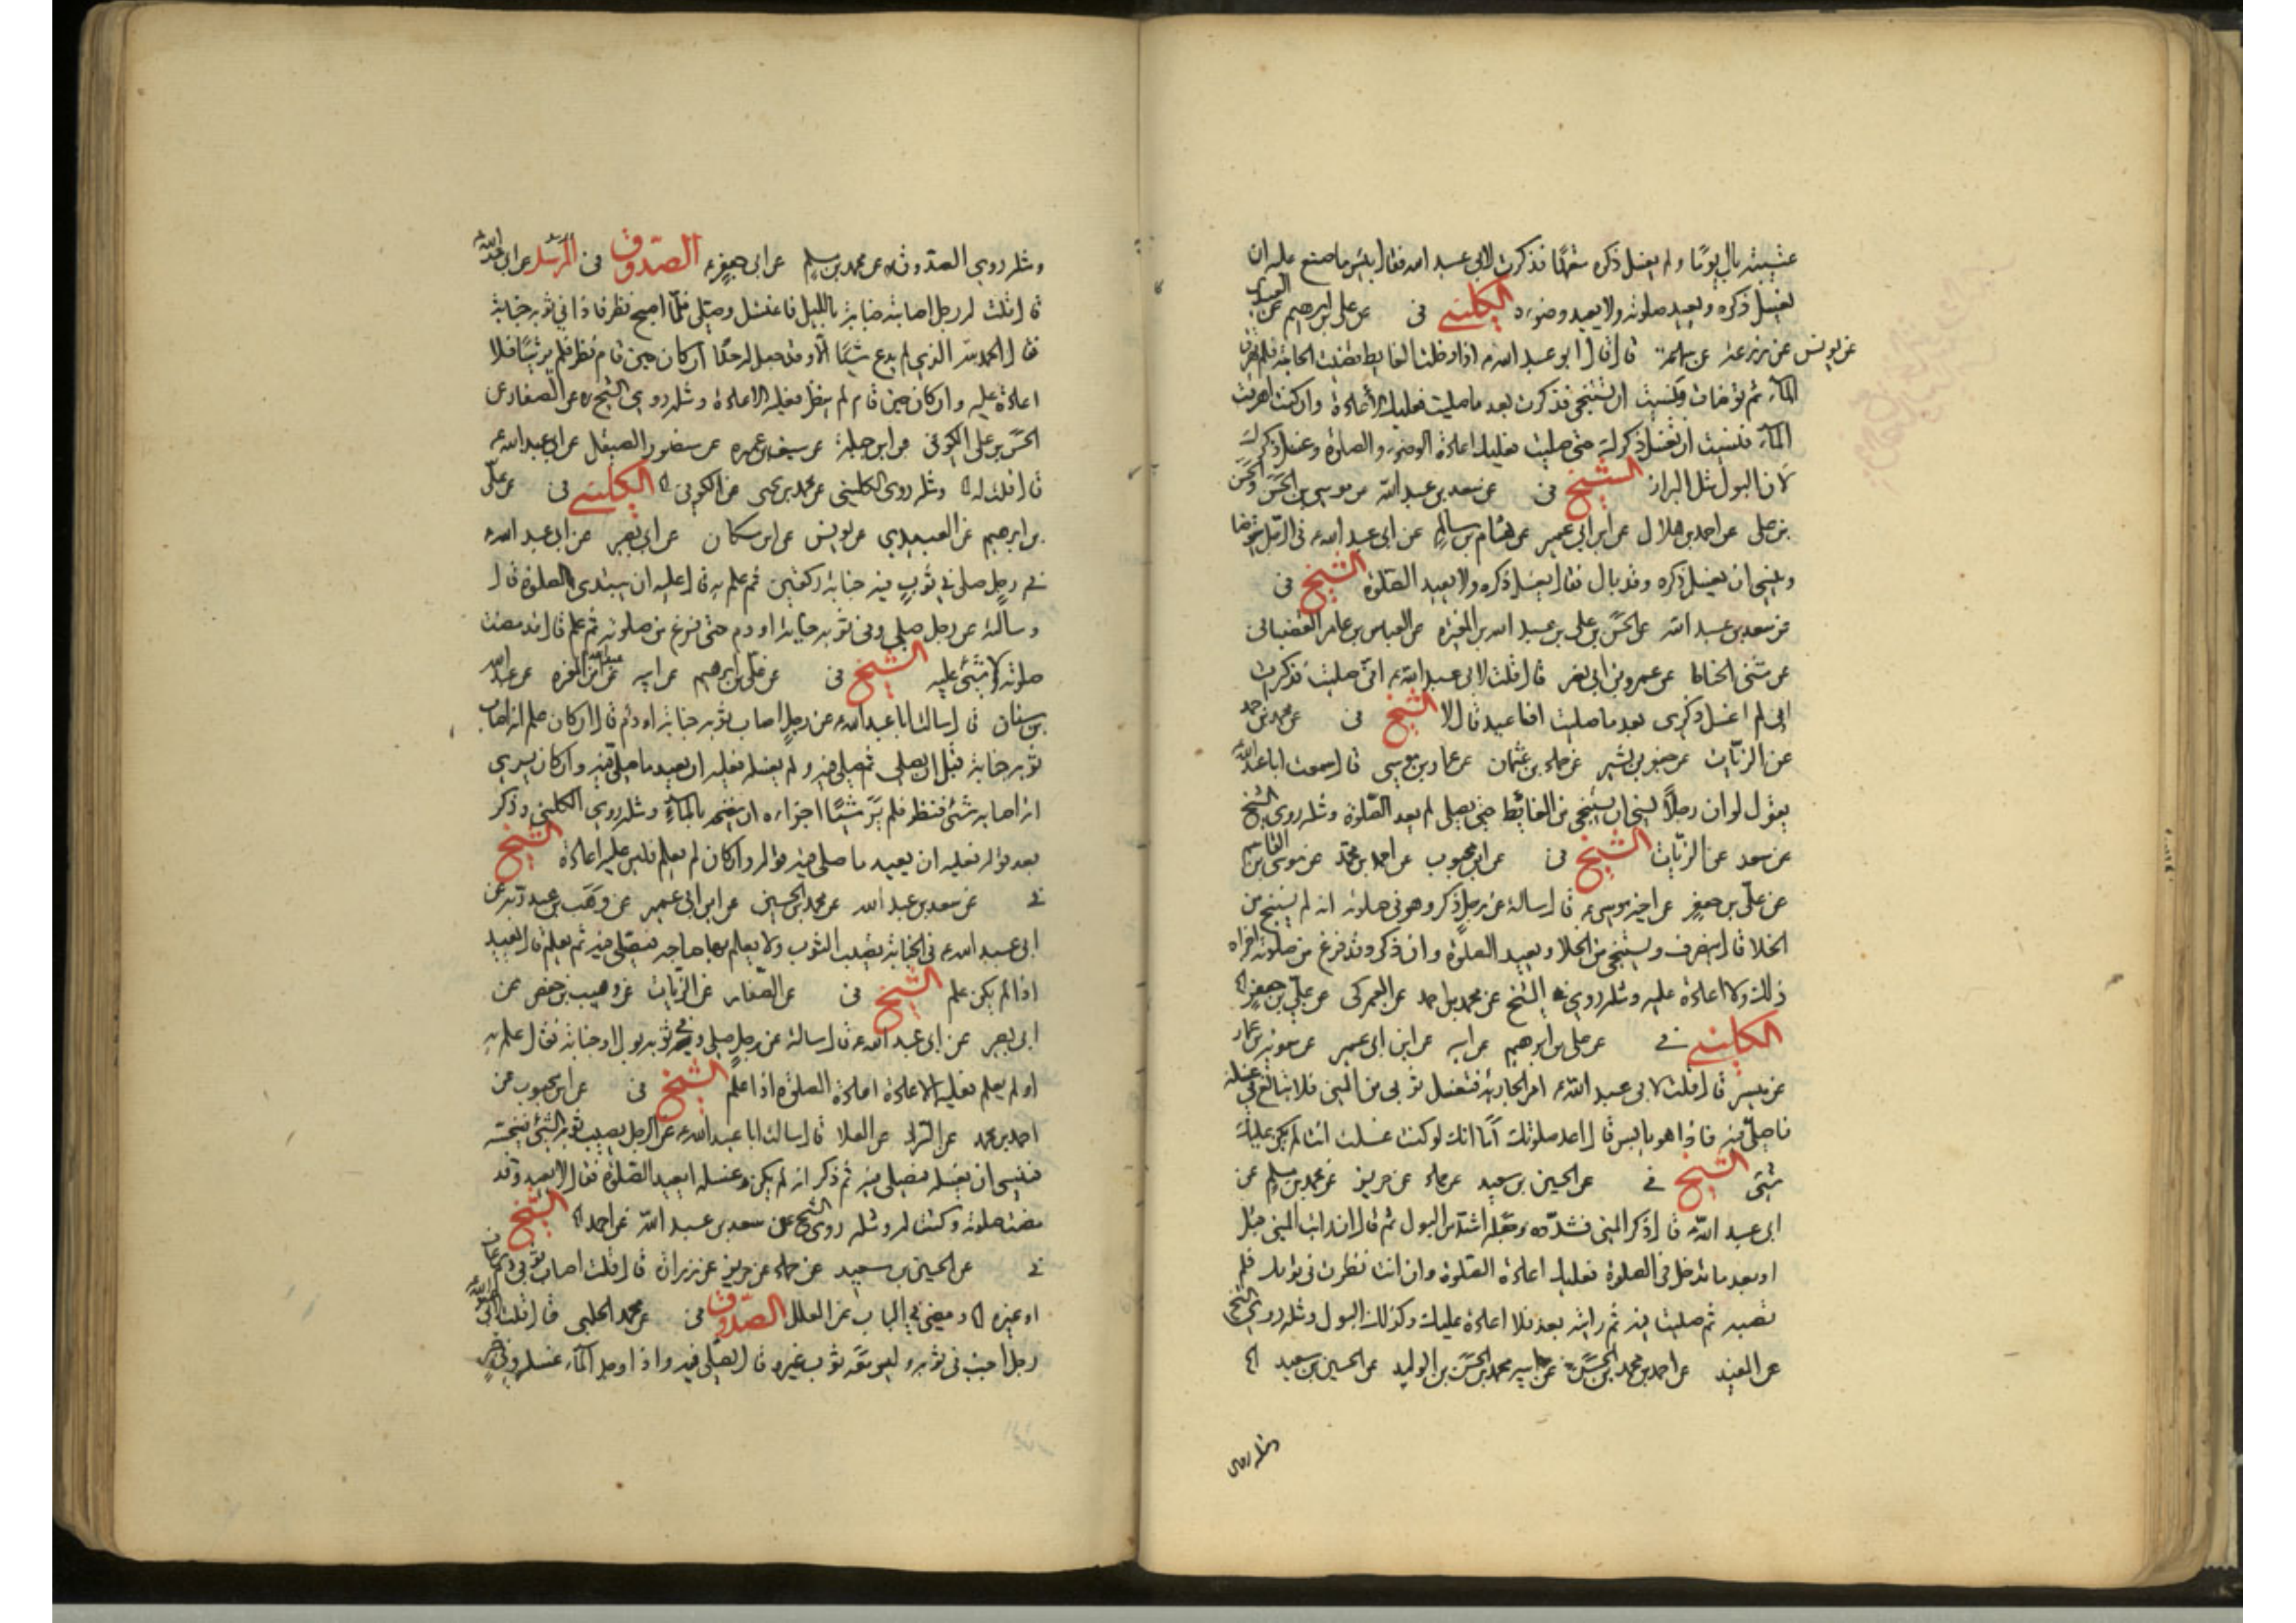 عتيبة بال يوما ولم يغسل ذكره متعمدا فذكرت لابى عبد الله فقال بئس ما صنع عليه ان
يغسل ذكره ويعيد صلوته ولا يعيد وضوءه الكلينى فى عن على بن ابرهيم عن العبيدى
عن يونس عن زرعة عن سماعة قال قال ابو عبد الله ع اذا دخلت الغايط فقضيت الحاجة فلم تهرق
الماء ثم توضات ونسيت ان تستنجى فذكرت بعد ما صليت فعليك الاعادة وان كنت اهرقت
الماء فنسيت ان تغسل ذكرك حتى صليت فعليك اعادة الوضوء والصلوة وغسل ذكرك
لان البول مثل البراز الشيخ فى عن سعد بن عبد الله عن موسى بن الحسن والحسن
بن على عن احمد بن هلال عن ابن ابى عمير عن هشام بن سالم عن ابى عبد الله ع فى الرجل يتوضا
وينسى ان يغسل ذكره وقد بال فقال يغسل ذكره ولا يعيد الصلوة الشيخ فى
عن سعد بن عبد الله عن الحسن بن على بن عبد الله بن المغيره عن العباس بن عامر القصبانى
عن مثنى الحناط عن عمرو بن ابى نصر قال قلت لابى عبد الله ع انى صليت فذكرت
انى لم اغسل ذكرى بعد ما صليت افاعيد قال لا الشيخ فى عن محمد بن احمد
عن الزيات عن جعفر بن بشير عن حماد بن عثمان عن عمار بن موسى قال سمعت ابا عبد الله
يقول لو ان رجلا نسى ان يستنجى من الغائط حتى يصلى لم يعد الصلوة ومثله روى الشيخ
عن سعد عن الزيات الشيخ فى عن ابن محبوب عن احمد بن محمد عن موسى بن القاسم
عن على بن جعفر عن اخيه موسى ع قال سالته عن رجل ذكر وهو فى صلوته انه لم يستنج من
الخلا قال ينصرف ويستنجى من الخلا ويعيد الصلوة وان ذكر وقد فرغ من صلوته اجزاه
ذلك ولا اعادة عليه ومثله روى الشيخ عن محمد بن احمد عن العمركى عن على بن جعفر
الكلينى فى عن على بن ابرهيم عن ابيه عن ابن ابى عمير عن معوية بن عمار
عن ميسر قال قلت لابى عبد الله ع امر الجارية فتغسل ثوبى من المنى فلا تبالغ فى غسله
فاصلى فيه فاذا هو يابس قال اعد صلوتك اما انك لو كنت غسلت انت لم يكن عليك
شئ الشيخ فى عن الحسين بن سعيد عن حماد عن حريز عن محمد بن مسلم عن
ابى عبد الله ع قال ذكر المنى فشدده وجعله اشد من البول ثم قال ان رايت المنى قبل
او بعد ما تدخل فى الصلوة فعليك اعادة الصلوة وان انت نظرت فى ثوبك فلم
تصبه ثم صليت فيه ثم رايته بعد فلا اعادة عليك وكذلك البول ومثله روى الشيخ
عن المفيد عن احمد بن محمد بن الحسن عن ابيه محمد بن الحسن بن الوليد عن الحسين بن سعيد
ومثله روى
ومثله روى الصدوق عن محمد بن مسلم عن ابى جعفر ع الصدوق فى المرسل عن ابى عبد الله
قال قلت له رجل اصابته جنابة بالليل فاغتسل وصلى فلما اصبح نظر فاذا فى ثوبه جنابة
فقال الحمد لله الذى لم يدع شيئا الا وقد جعل له حدا ان كان حين قام نظر فلم ير شيئا فلا
اعادة عليه وان كان حين قام لم ينظر فعليه الاعادة ومثله روى الشيخ عن الصفار عن
الحسن بن على الكوفى عن ابن جبلة عن سيف بن عميره عن منصور الصيقل عن ابى عبد الله ع
قال قلت له ومثله روى الكلينى عن محمد بن يحيى عن الكوفى الكلينى فى عن على
بن ابرهيم عن العبيدى عن يونس عن ابن مسكان عن ابى بصير عن ابى عبد الله ع
فى رجل صلى فى ثوب فيه جنابة ركعتين ثم علم به قال عليه ان يبتدى الصلوة قال
وسالته عن رجل صلى وفى ثوبه جنابة او دم حتى فرغ من صلوته ثم علم قال قد مضت
صلوته ولا شئ عليه الشيخ فى عن على بن ابرهيم عن ابيه عن ابن المغيره عن عبد الله
بن سنان قال سالت ابا عبد الله ع عن رجل اصاب ثوبه جنابة او دم قال ان كان علم انه اصاب
ثوبه جنابة قبل ان يصلى ثم صلى فيه ولم يغسله فعليه ان يعيد ما صلى فيه وان كان يرى
انه اصابه شئ فنظر فلم ير شيئا اجزاه ان ينضحه بالماء ومثله روى الكلينى وذكر
بعد قوله فعليه ان يعيد ما صلى فيه قوله وان كان لم يعلم فليس عليه اعادة الشيخ
فى عن سعد بن عبد الله عن محمد بن الحسين عن ابن ابى عمير عن وهب بن عبد ربه عن
ابى عبد الله ع فى الجنابة تصيب الثوب ولا يعلم بها صاحبه فيصلى فيه ثم يعلم قال يعيد
اذا لم يكن علم الشيخ فى عن الصفار عن الزيات عن وهيب بن حفص عن
ابى بصير عن ابى عبد الله ع قال سالته عن رجل صلى وفى ثوبه بول او جنابة فقال علم به
او لم يعلم فعليه الاعادة اعادة الصلوة اذا علم الشيخ فى عن ابن محبوب عن
احمد بن محمد عن العلا قال سالت ابا عبد الله ع عن الرجل يصيب ثوبه الشئ ينجسه
فينسى ان يغسله فيصلى فيه ثم ذكر انه لم يكن غسله ايعيد الصلوة فقال لا يعيد وقد
مضت صلوته وكتبت له ومثله روى الشيخ عن سعد بن عبد الله عن احمد الشيخ
فى عن الحسين بن سعيد عن حماد عن حريز عن زرارة قال قلت اصاب ثوبى دم رعاف
او غيره ومضى فى الباب عن العلل الصدوق فى عن محمد الحلبى قال قلت لابى عبد الله
رجل اجنب فى ثوبه وليس معه ثوب غيره قال يصلى فيه واذا وجد الماء غسله وفى خبر